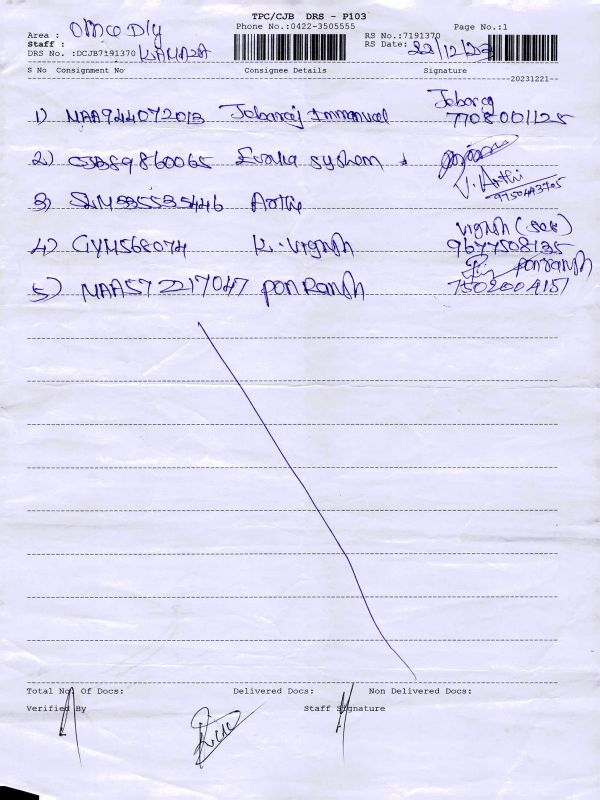 TPC/CJB DRS - P103
Phone No.:0422-3505555
Page No.:1
Area : Office Dly
RS No.:7191370
Staff :
RS Date: 22/12/23
DRS No. :DCJB7191370
S No Consignment No Consignee Details Signature
20231221
Jebaraj
1) MAA944072013 Jebaraj Immanuel 7708001125
2) CJB59860065 System
V. Arthi
9750443705
3) SLM335535446 Arthi
Vignesh
4) CVM568074 K. Vignesh 9677508135
Ponranesh
5) MAA572217047 Pon Ranesh 7502004151
Total No Of Docs: Delivered Docs: Non Delivered Docs:
Verified By Staff Signature